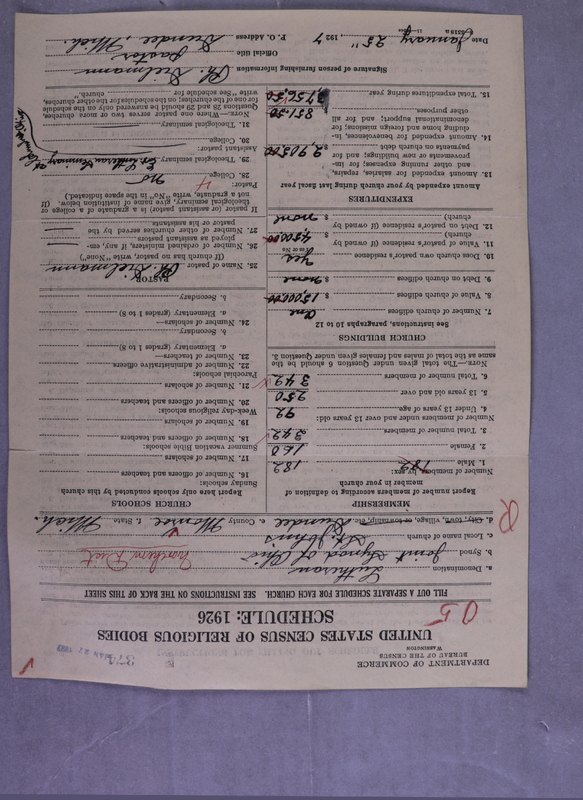 DEPARTMENT OF COMMERCE
BUREAU OF THE CENSUS
WASHINGTON
UNITED STATES CENSUS OF RELIGIOUS BODIES
SCHEDULE: 1926
FILL OUT A SEPARATE SCHEDULE FOR EACH CHURCH. SEE INSTRUCTIONS ON THE BACK OF THIS SHEET
a. Denomination Lutheran
b. Synod Joint Synod of Ohio Northern Dist
c. Local name of church St. John's
d. City, town, village, or township, etc. Dundee e. County Monroe f. State Mich.
MEMBERSHIP
Report number of members according to definition of
member in your church
Number of members by sex:
1. Male 182
2. Female 160
3. Total number of members 342
Number of members under and over 13 years old:
4. Under 13 years of age 92
5. 13 years old and over 250
6. Total number of members 342
NOTE.—The total given under Question 6 should be the
same as the total of males and females given under Question 3.
CHURCH BUILDINGS
See instructions, paragraphs 10 to 12
7. Number of church edifices one
8. Value of church edifices $ 15,000.00
9. Debt on church edifices $ none
10. Does church own pastor's residence Yes
Yes or No
11. Value of pastor's residence (if owned by
church) $ 4,500.00
12. Debt on pastor's residence (if owned by
church) $ none
EXPENDITURES
Amount expended by your church during last fiscal year
13. Amount expended for salaries, repairs,
and other running expenses; for im-
provements or new buildings; and for
payments on church debt
14. Amount expended for benevolences, in-
cluding home and foreign missions; for
denominational support; and for all
other purposes 851.50
15. Total expenditures during year
CHURCH SCHOOLS
Report here only schools conducted by this church
Sunday schools:
16. Number of officers and teachers
17. Number of scholars
Summer vacation Bible schools:
18. Number of officers and teachers
19. Number of scholars
Week-day religious schools:
20. Number of officers and teachers
21. Number of scholars
Parochial schools:
22. Number of administrative officers
23. Number of teachers—
a. Elementary (grades 1 to 8)
b. Secondary
24. Number of scholars—
a. Elementary (grades 1 to 8)
b. Secondary
PASTOR
25. Name of pastor Ph. Dielmann
(If church has no pastor, write "None")
26. Number of ordained ministers, if any, em-
ployed as assistant pastors
27. Number of other churches served by the
pastor or his assistants
If pastor (or assistant pastor) is a graduate of a college or
theological seminary, give name of institution below. (If
not a graduate, write "No" in the space indicated.)
Pastor:
28. College No
29. Theological seminary Ev. Lutheran Seminary at
Assistant pastor:
30. College
31. Theological seminary
NOTE.—Where one pastor serves two or more churches,
Questions 28 and 29 should be answered only on the schedule
for one of the churches; on the schedules for the other churches,
write "See schedule for church."
Signature of person furnishing information Ph. Dielmann
Official title Pastor
Date January 25" 1927 P. O. Address Dundee, Mich.